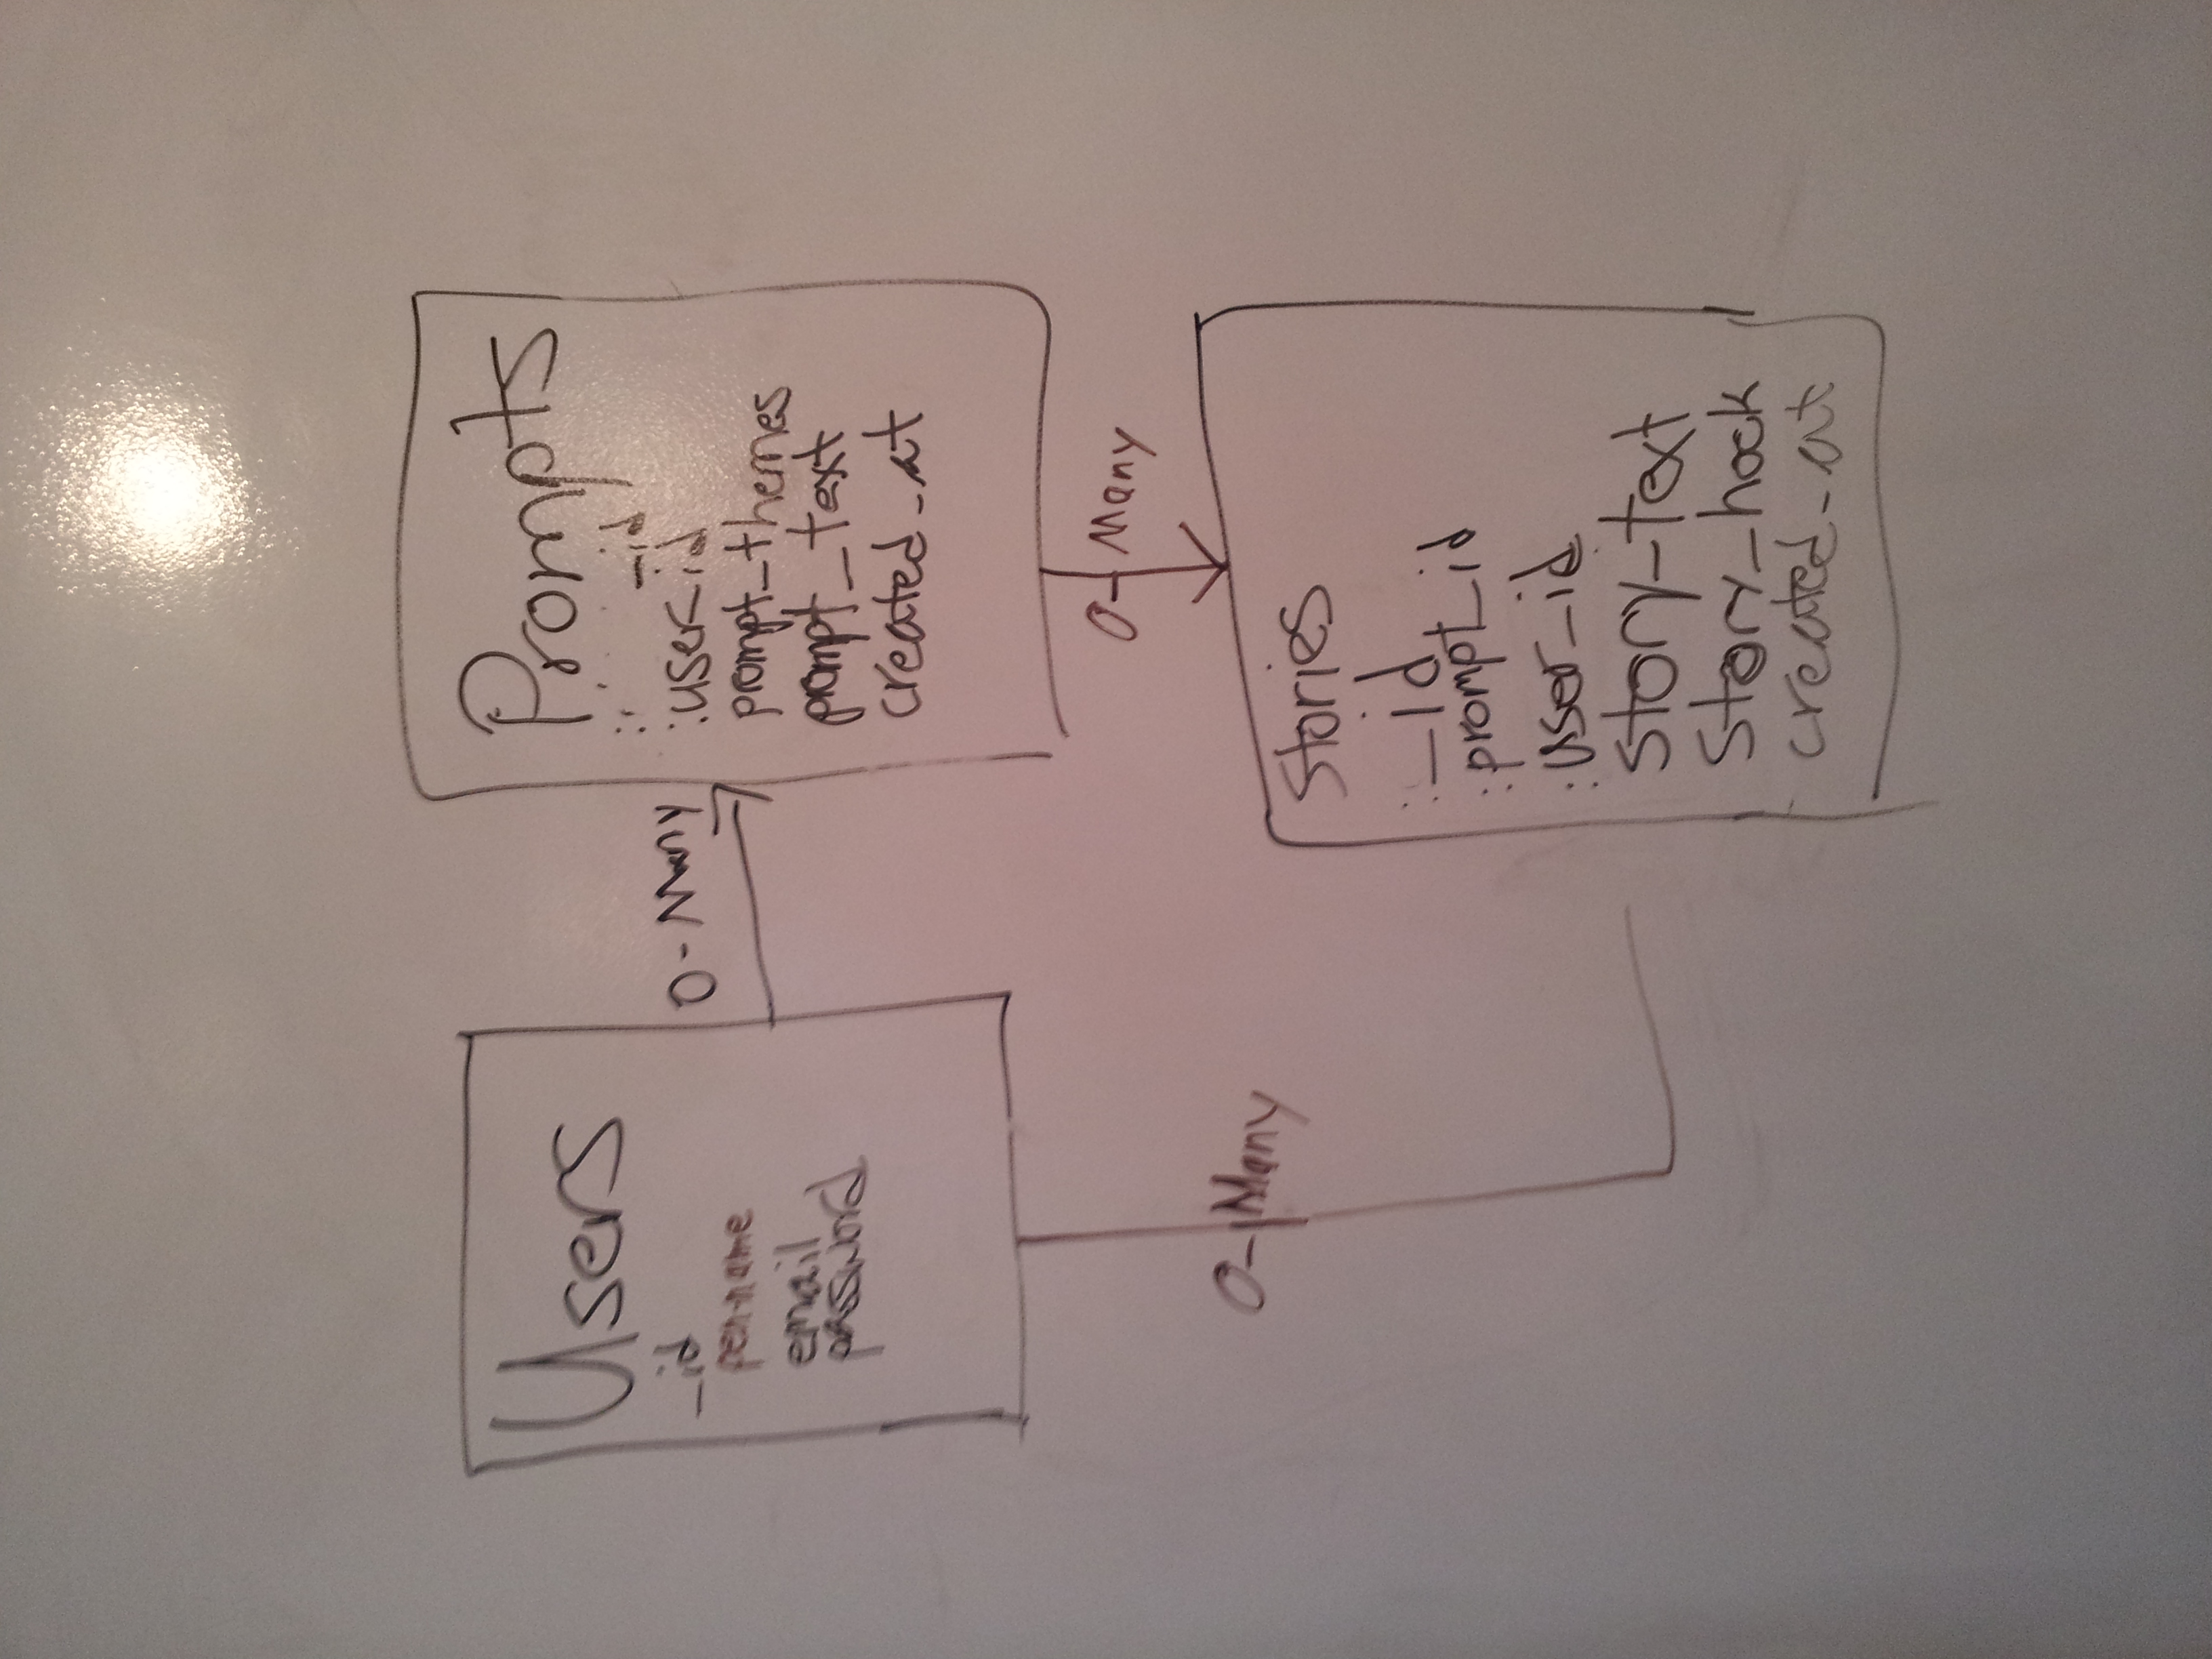 Users
_id
pen-name
email
password
O - Many
Prompts
: _id
:user_id
prompt_themes
prompt_text
created_at
O- Many
O- Many
Stories
:_id
:prompt_id
:user_id
story_text
story_hook
created_at